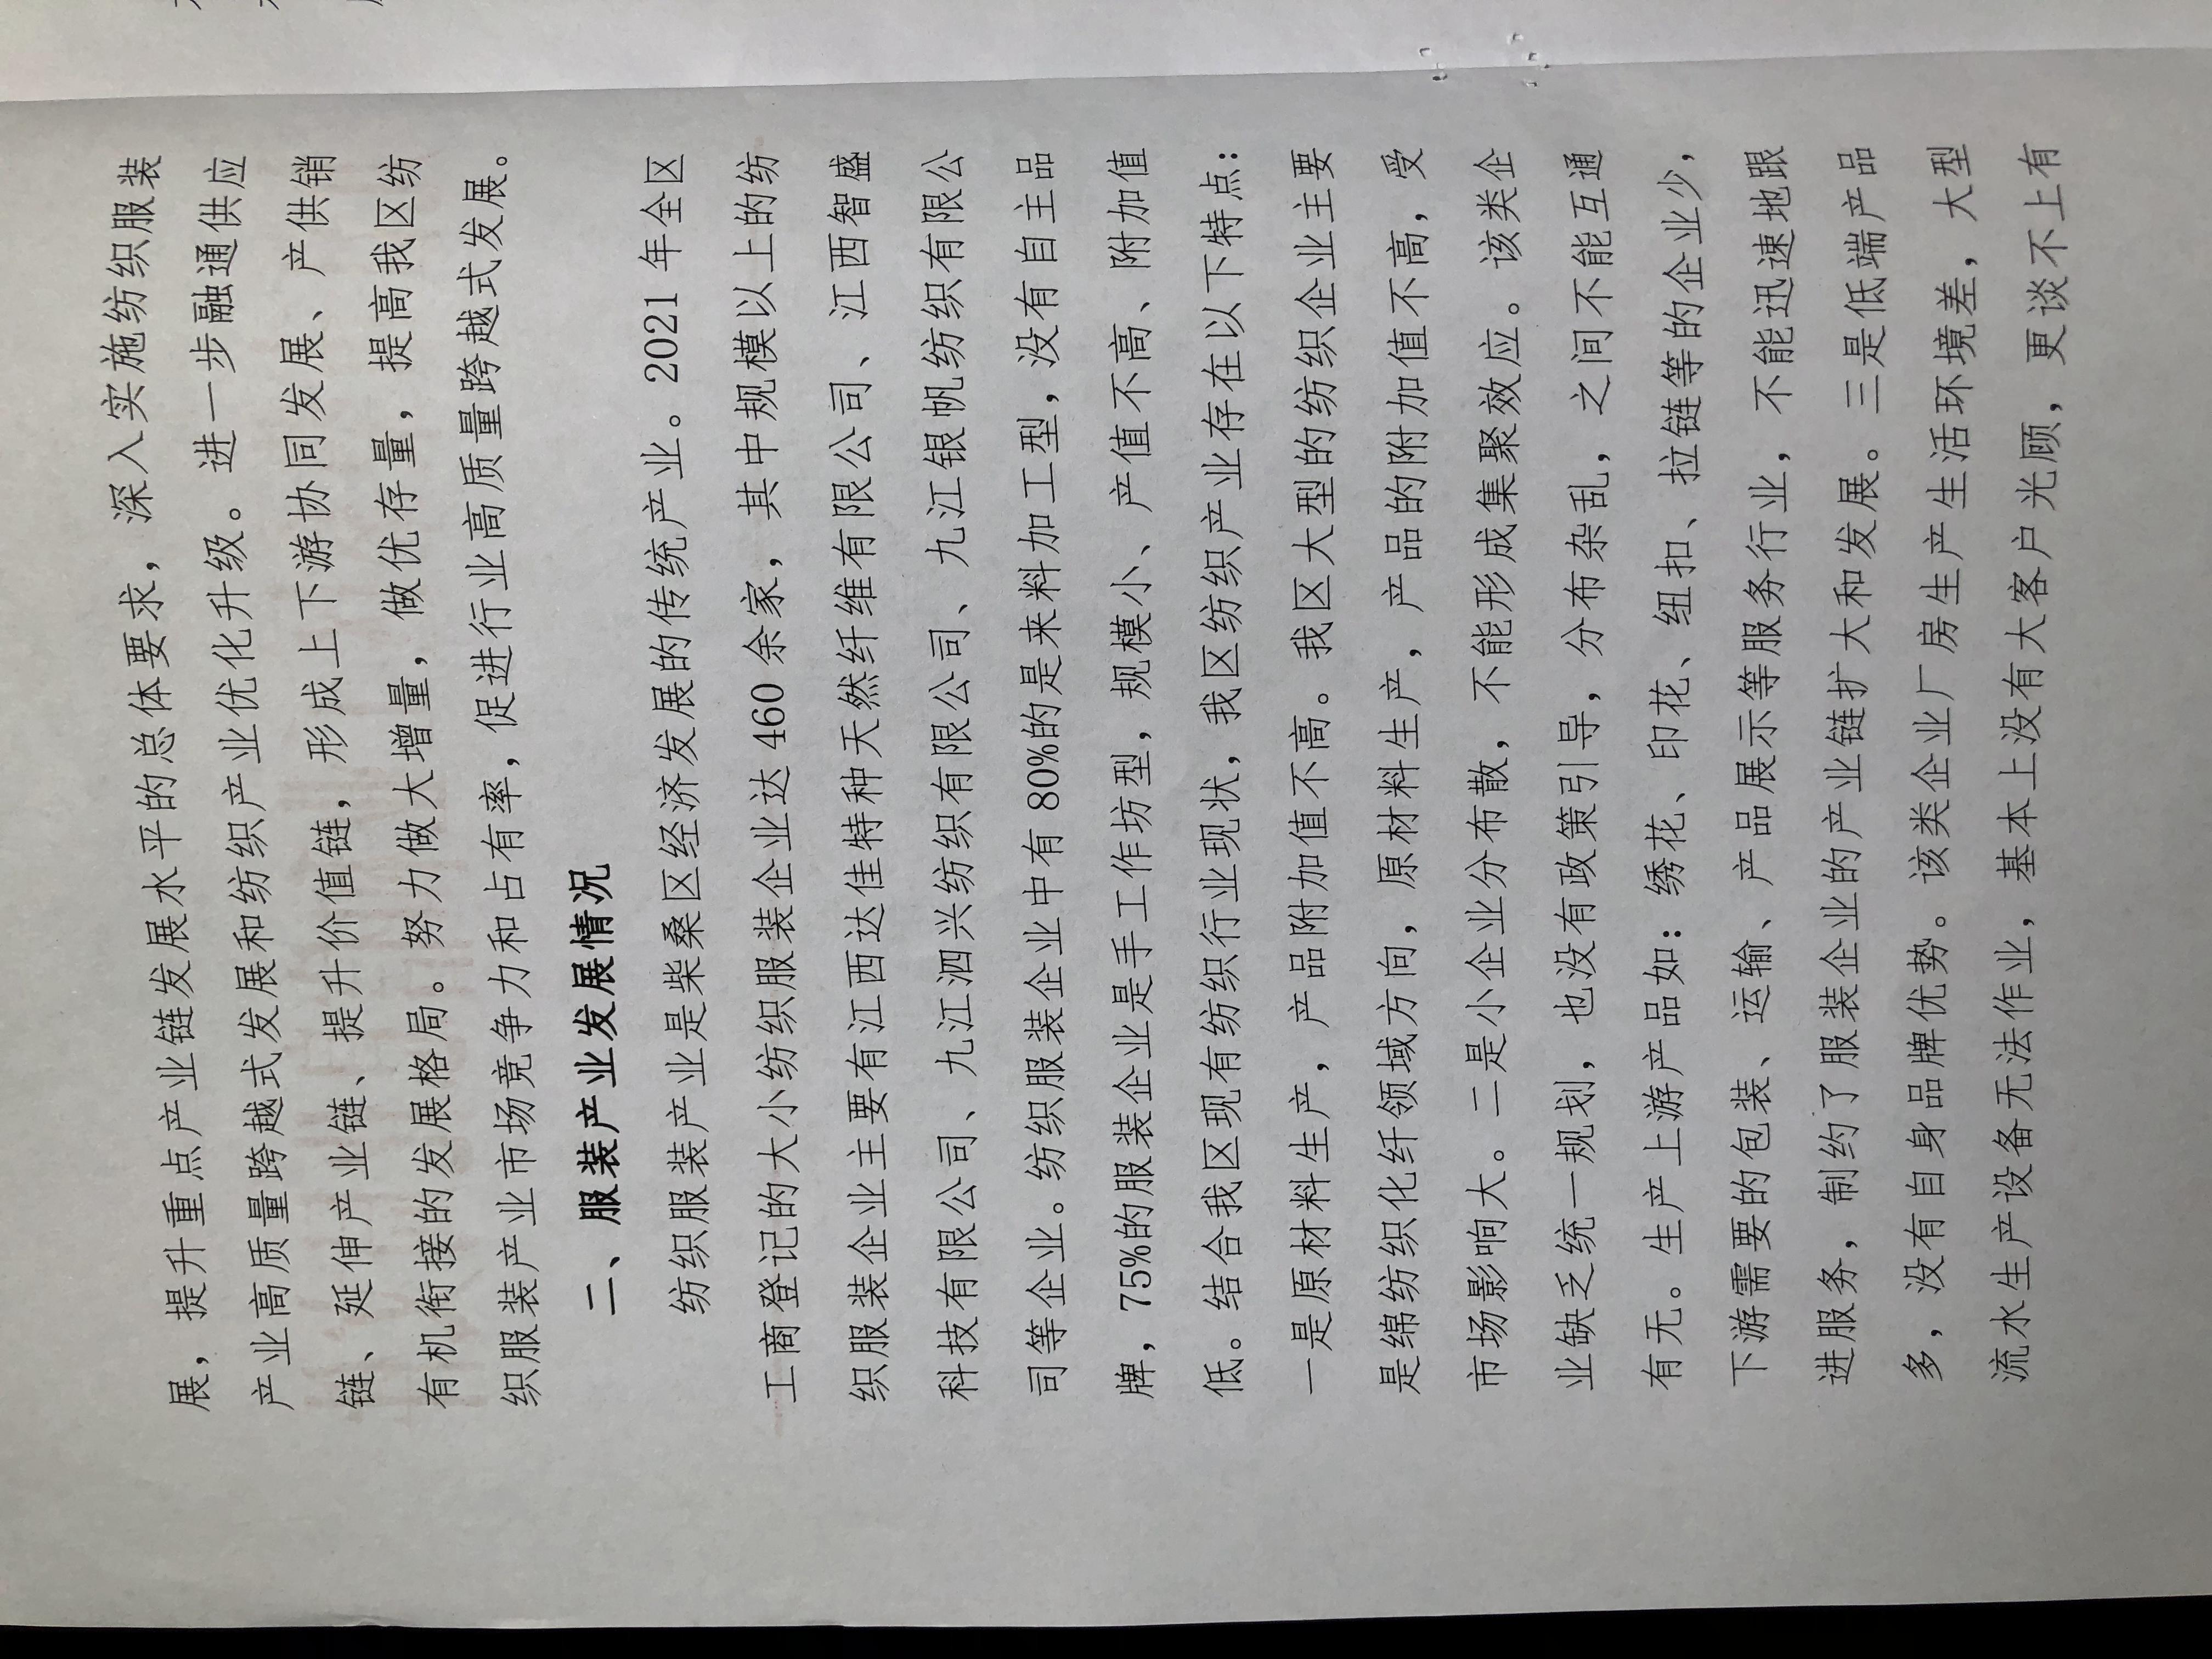 展，提升重点产业链发展水平的总体要求，深入实施纺织服装
产业高质量跨越式发展和纺织产业优化升级。进一步融通供应
链、延伸产业链、提升价值链，形成上下游协同发展、产供销
有机衔接的发展格局。努力做大增量，做优存量，提高我区纺
织服装产业市场竞争力和占有率，促进行业高质量跨越式发展。
二、服装产业发展情况
纺织服装产业是柴桑区经济发展的传统产业。2021年全区
工商登记的大小纺织服装企业达460余家，其中规模以上的纺
织服装企业主要有江西达佳特种天然纤维有限公司、江西智盛
科技有限公司、九江泗兴纺织有限公司、九江银帆纺织有限公
司等企业。纺织服装企业中有80%的是来料加工型，没有自主品
牌，75%的服装企业是手工作坊型，规模小、产值不高、附加值
低。结合我区现有纺织行业现状，我区纺织产业存在以下特点：
一是原材料生产，产品附加值不高。我区大型的纺织企业主要
是绵纺织化纤领域方向，原材料生产，产品的附加值不高，受
市场影响大。二是小企业分布散，不能形成集聚效应。该类企
业缺乏统一规划，也没有政策引导，分布杂乱，之间不能互通
有无。生产上游产品如：绣花、印花、纽扣、拉链等的企业少，
下游需要的包装、运输、产品展示等服务行业，不能迅速地跟
进服务，制约了服装企业的产业链扩大和发展。三是低端产品
多，没有自身品牌优势。该类企业厂房生产生活环境差，大型
流水生产设备无法作业，基本上没有大客户光顾，更谈不上有